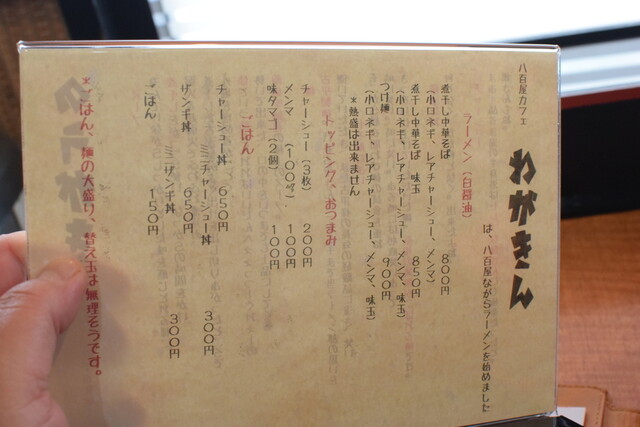 八百屋カフェ
わがきん
は、八百屋ながらラーメンを始めました
ラーメン（白醤油）
煮干し中華そば 800円
（小口ネギ、レアチャーシュー、メンマ）
煮干し中華そば 味玉 850円
（小口ネギ、レアチャーシュー、メンマ、味玉）
つけ麺 900円
（小口ネギ、レアチャーシュー、メンマ、味玉）
*熱盛は出来ません
トッピング、おつまみ
チャーシュー（3枚） 200円
メンマ （100g） 100円
味タマゴ（2個） 100円
ごはん
チャーシュー丼 650円
ミニチャーシュー丼 300円
ザンギ丼 650円
ミニザンギ丼 300円
ごはん 150円
*ごはん、麺の大盛り、替え玉は無理そうです。